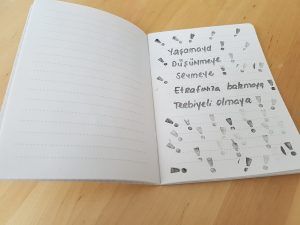 Yaşamaya
Düşünmeye
Sevmeye
Etrafınıza bakmaya
Terbiyeli olmaya